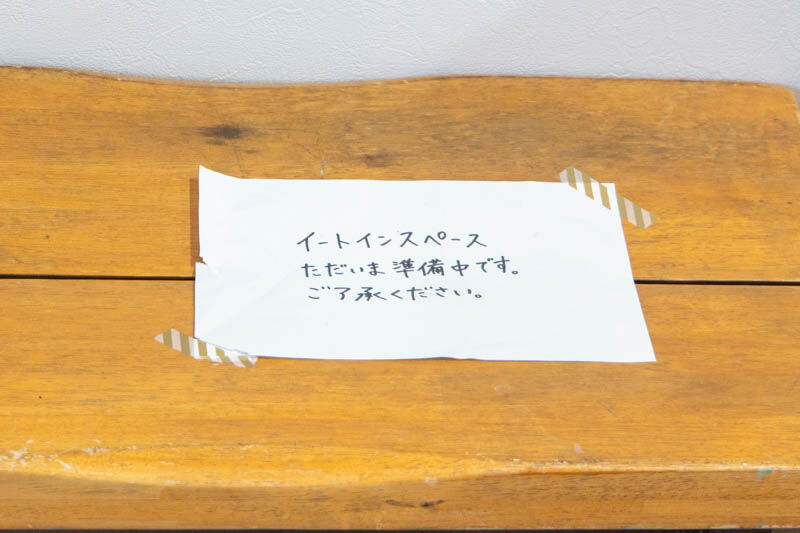 イートインスペース
ただいま準備中です。
ご了承ください。